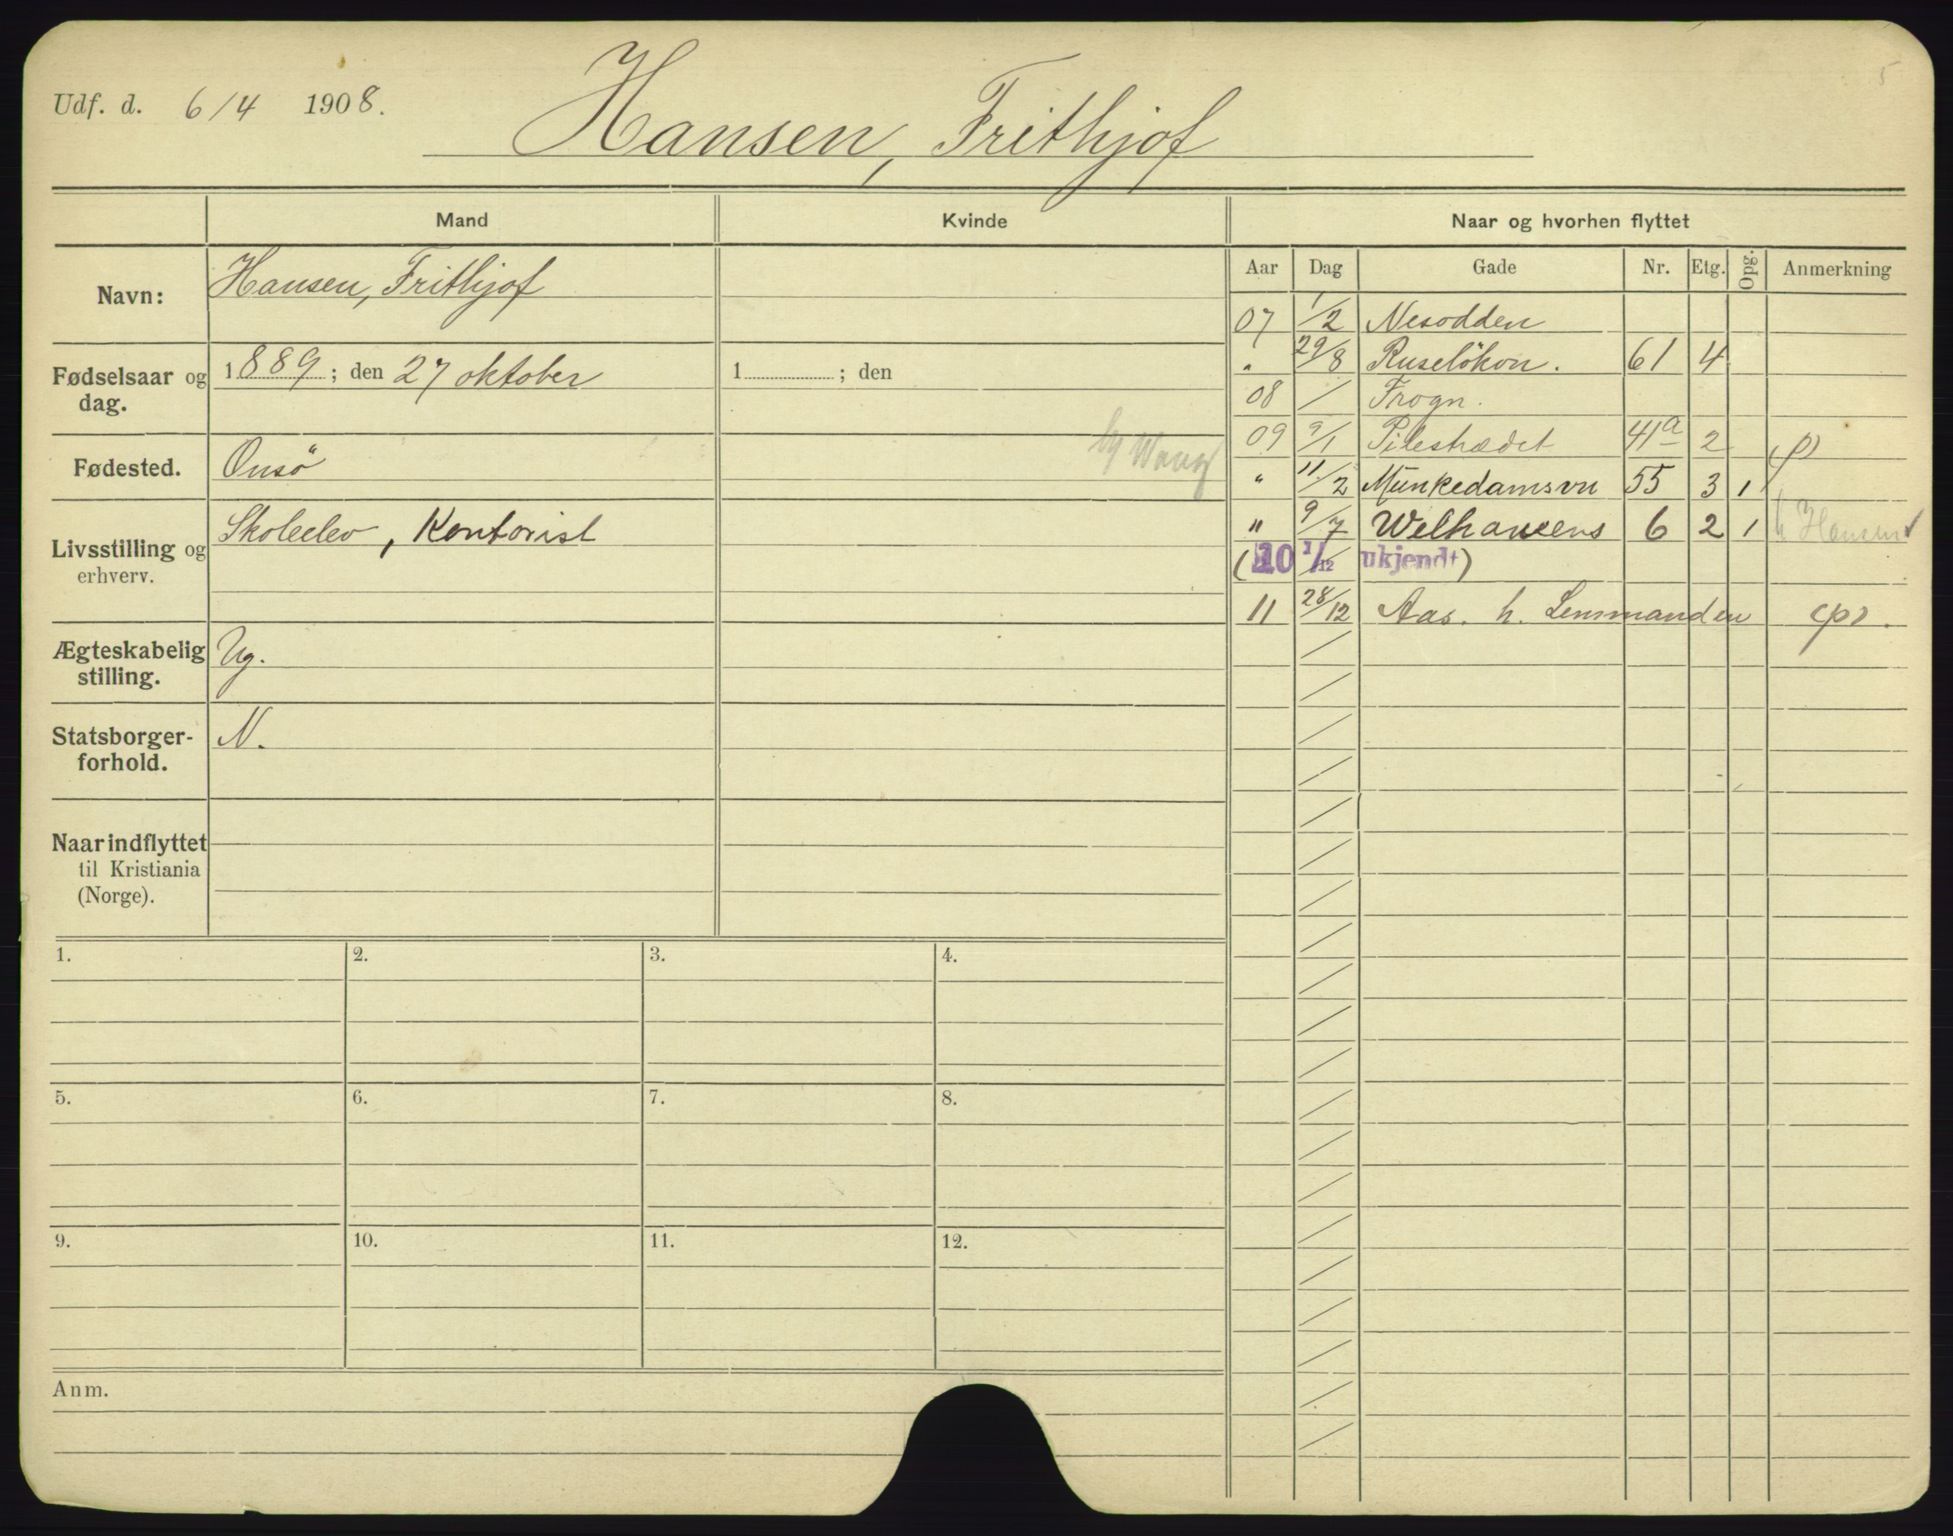 Udf. d. 6/4 1908.
5
Hansen, Frithjof
Mand
Kvinde
Naar og hvorhen flyttet
Navn: Hansen, Frithjof
Fødselsaar og dag. 1889; den 27 oktober
1 ; den
Fødested. Onsö
Livsstilling og erhverv. Skoleelev, Kontorist
Ægteskabelig stilling. Ug.
Statsborger-forhold. N.
Naar indflyttet
til Kristiania
(Norge).
Aar Dag Gade Nr. Etg. Opg. Anmerkning
07 1/2 Nesodden
" 29/8 Ruselökvn. 61 4
08 / Frogn.
09 9/1 Pilestrædet 41a 2
" 11/2 Munkedamsvn 55 3 1
" 9/7 Welhavens 6 2 1 h Hansen
(10 1/12 ukjendt)
11 28/12 Aas. h. Lensmanden
1.
2.
3.
4.
5.
6.
7.
8.
9.
10.
11.
12.
Anm.